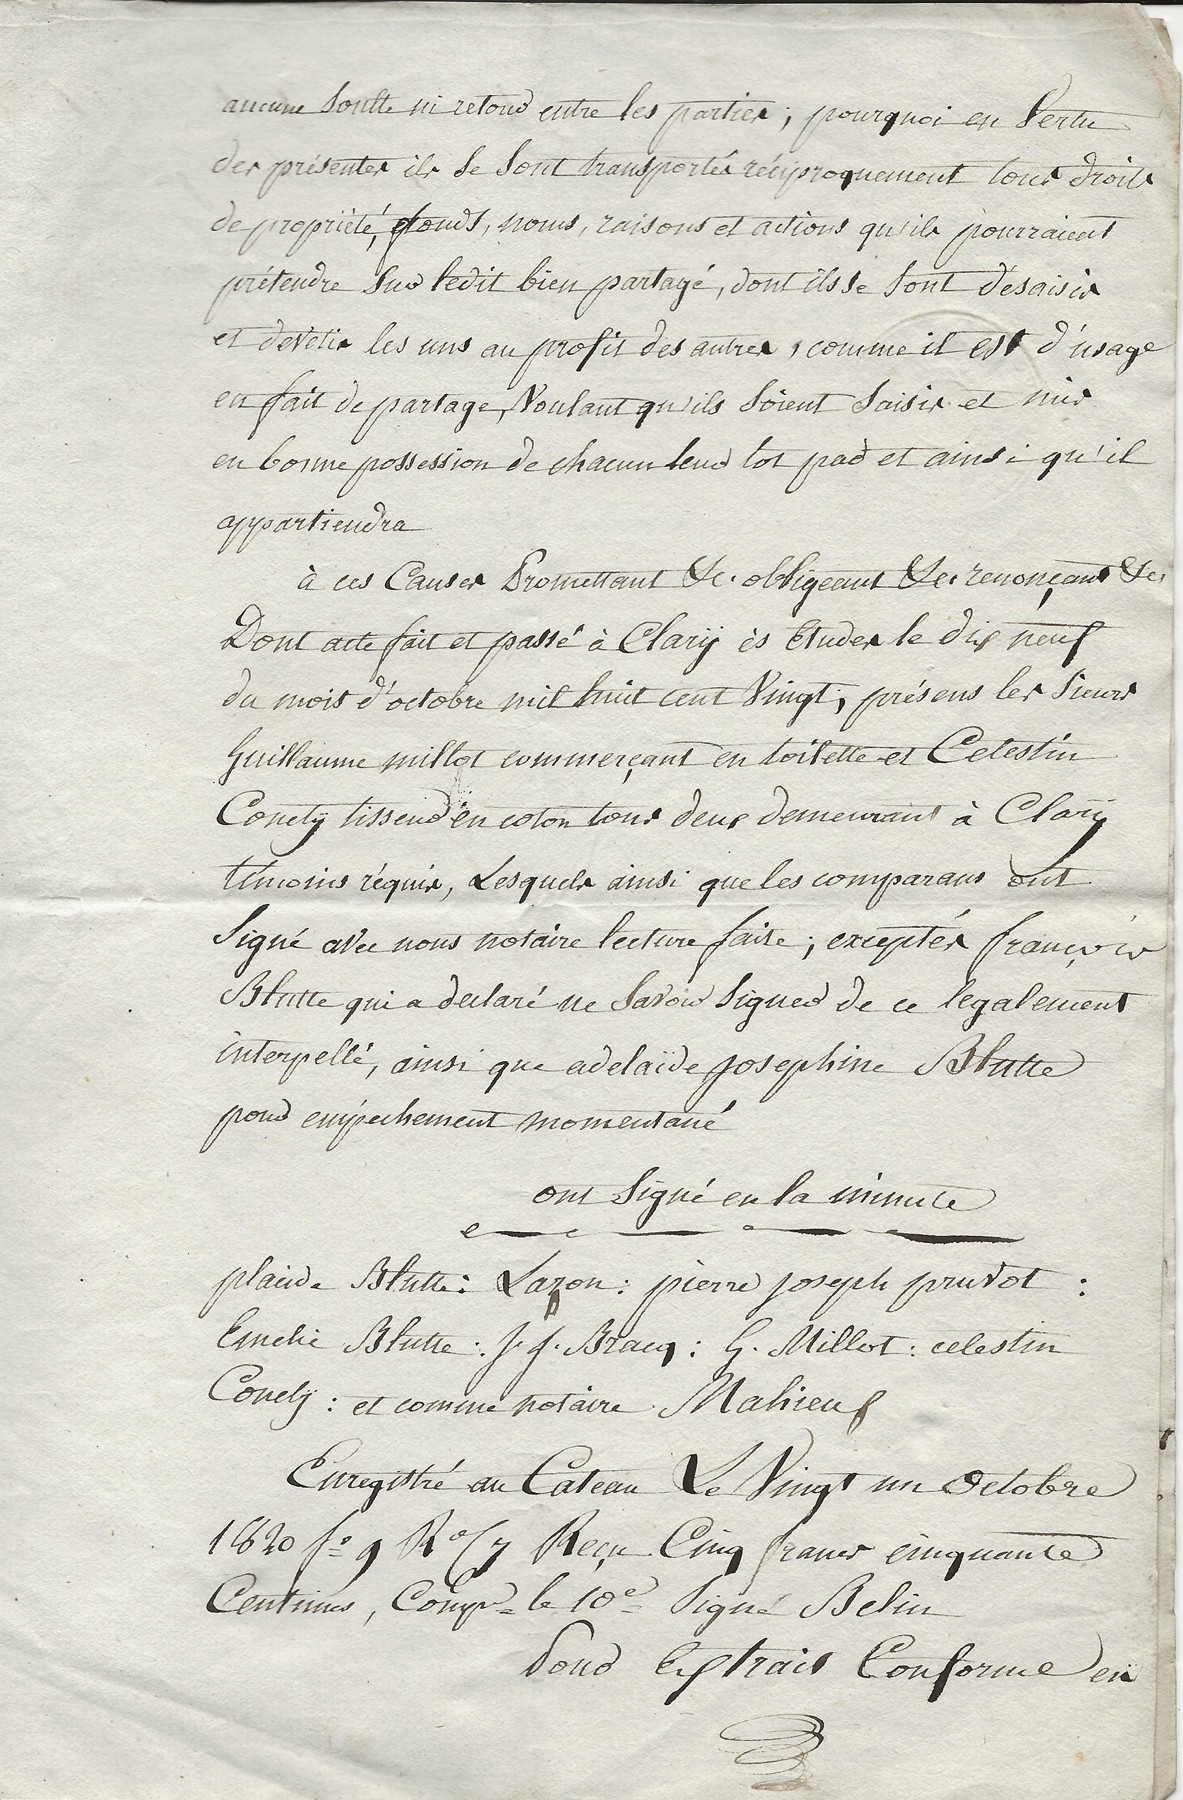 aucune soulte ni retour entre les parties ; pourquoi en vertu
des présentes ils se sont transportés réciproquement tous droits
de propriété, fonds, noms, raisons et actions qu'ils pourraient
prétendre sur ledit bien partagé, dont ils se sont désaisis
et devetis les uns au profit des autres, comme il est d'usage
en fait de partage, Voulant qu'ils soient saisis et mis
en bonne possession de chacun leur lot par et ainsi qu'il
appartiendra
à ces Causes Promettant &c. obligeant &c. renonçant &c
Dont acte fait et passé à Clary ès Etudes le dix neuf
du mois d'octobre mil huit cent Vingt, présens les sieurs
Guillaume millot commerçant en toilette et Celestin
Conely tisseur en coton tous deux demeurant à Clary
témoins réquis, Lesquels ainsi que les comparans ont
signé avec nous notaire lecture faite ; exceptés françois
Blutte qui a declaré ne savoir signer de ce légalement
interpellé, ainsi que adelaïde josephine Blutte
pour empechement momentané
ont signé en la minute
placide Blutte : Lazon : pierre joseph pruvot :
Emelie Blutte : J. J. Bracq : G. Millot : celestin
Conely : et comme notaire Mahieux
Enregistré au Cateau Le Vingt un Octobre
1820 fo 9 Ro C 7 Reçu Cinq francs cinquante
Centimes, Compr le 10e signé Belin
Pour Extrait Conforme en